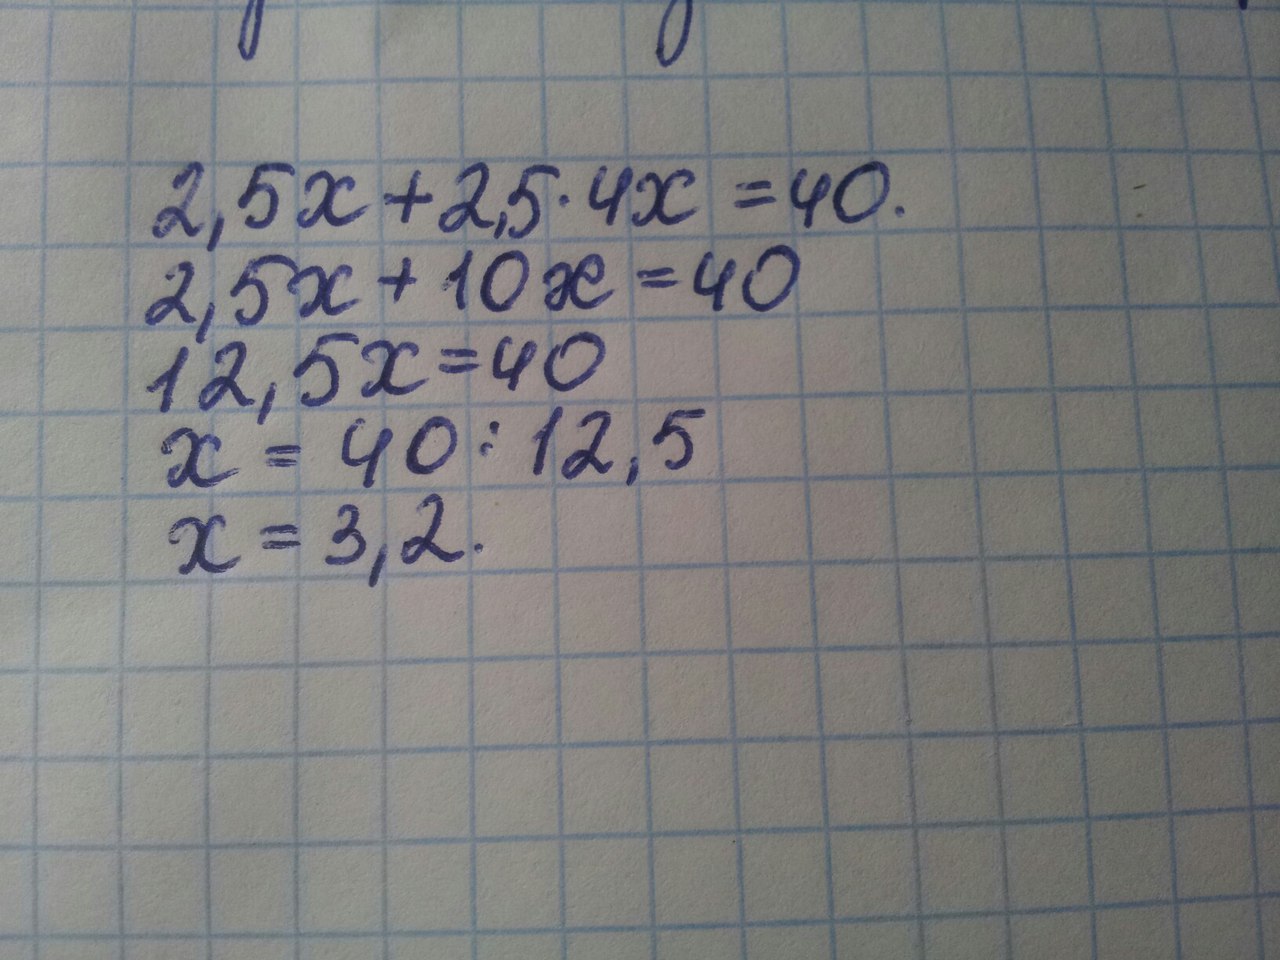 2,5x + 2,5 · 4x = 40.
2,5x + 10x = 40
12,5x = 40
x = 40 : 12,5
x = 3,2.